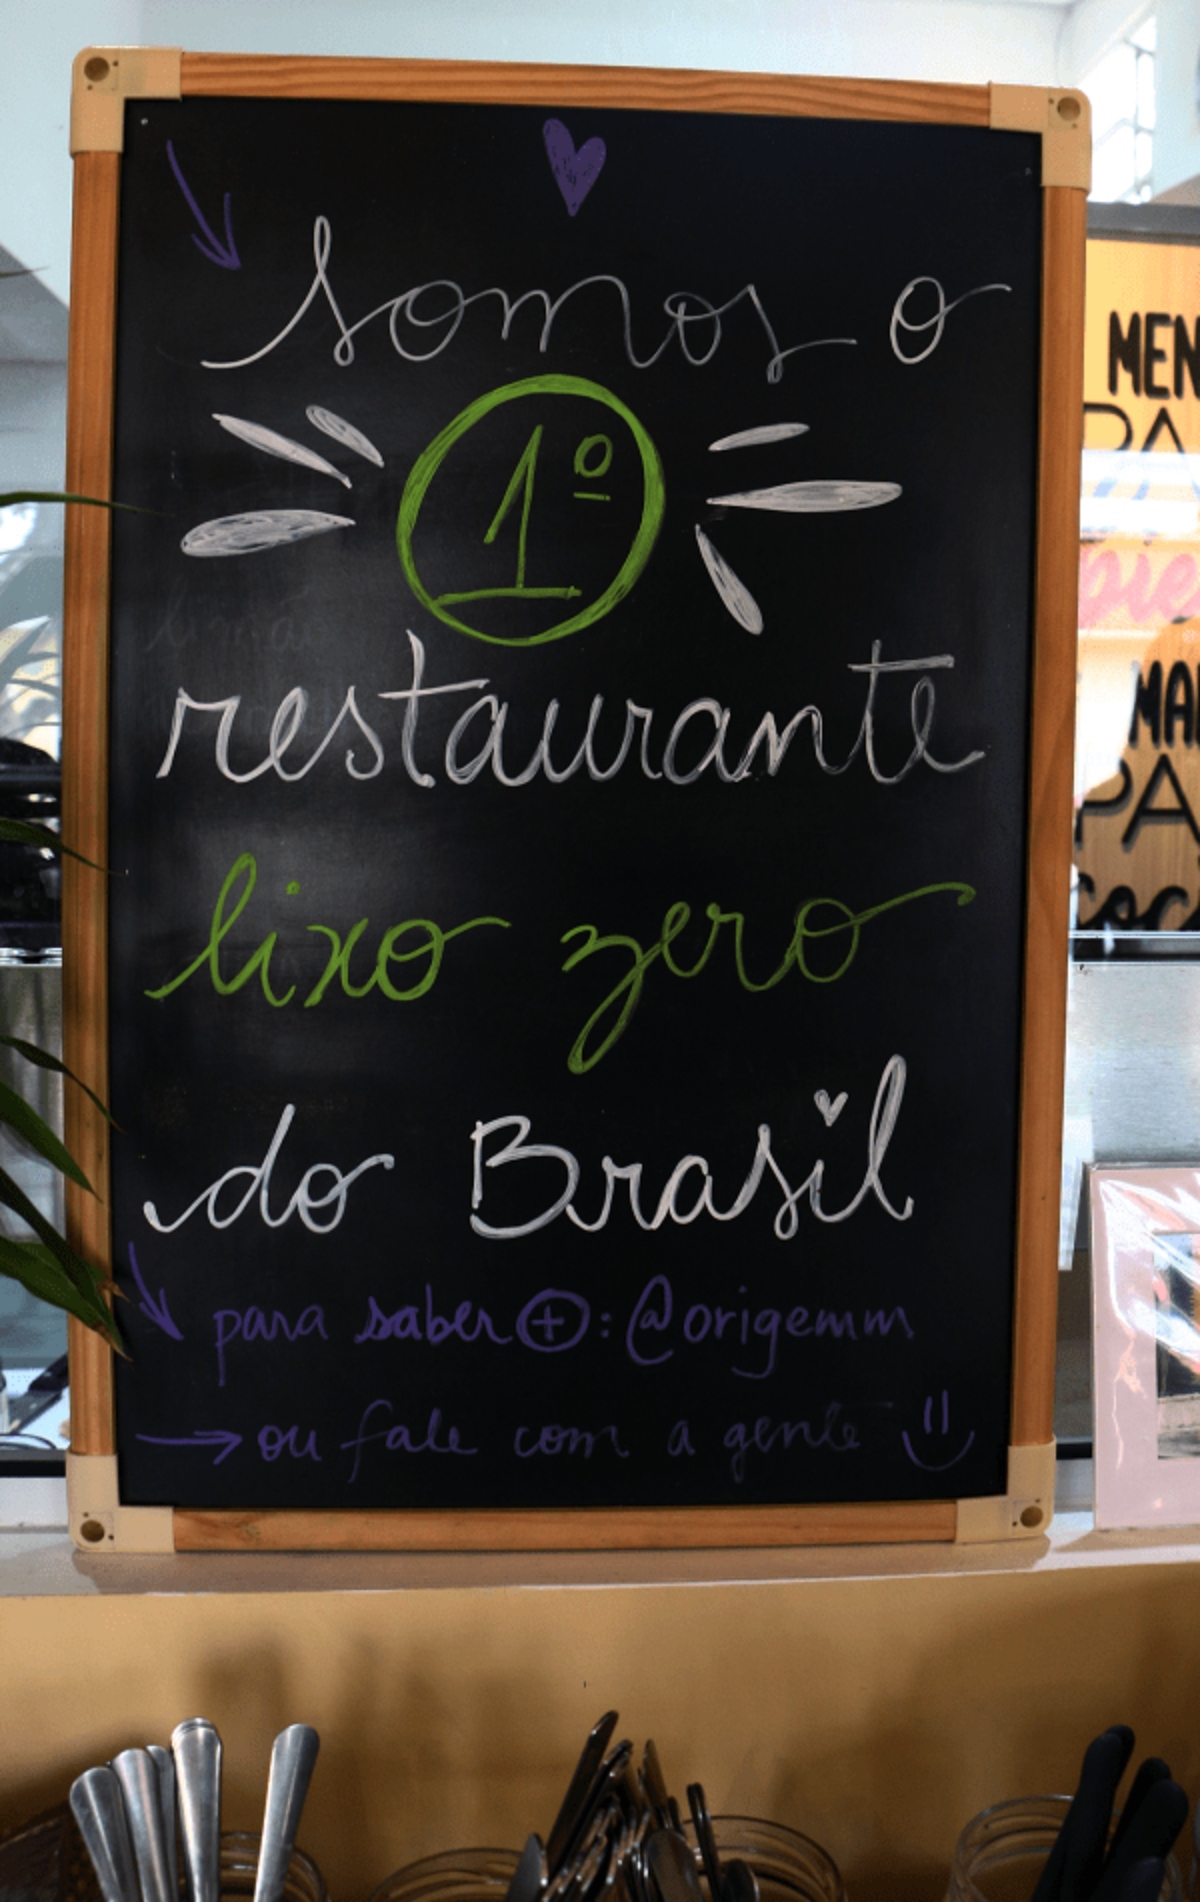 somos o
1º
restaurante
lixo zero
do Brasil
para saber +: @origemm
ou fale com a gente
MEN
PA
pie
MA
PA
coc